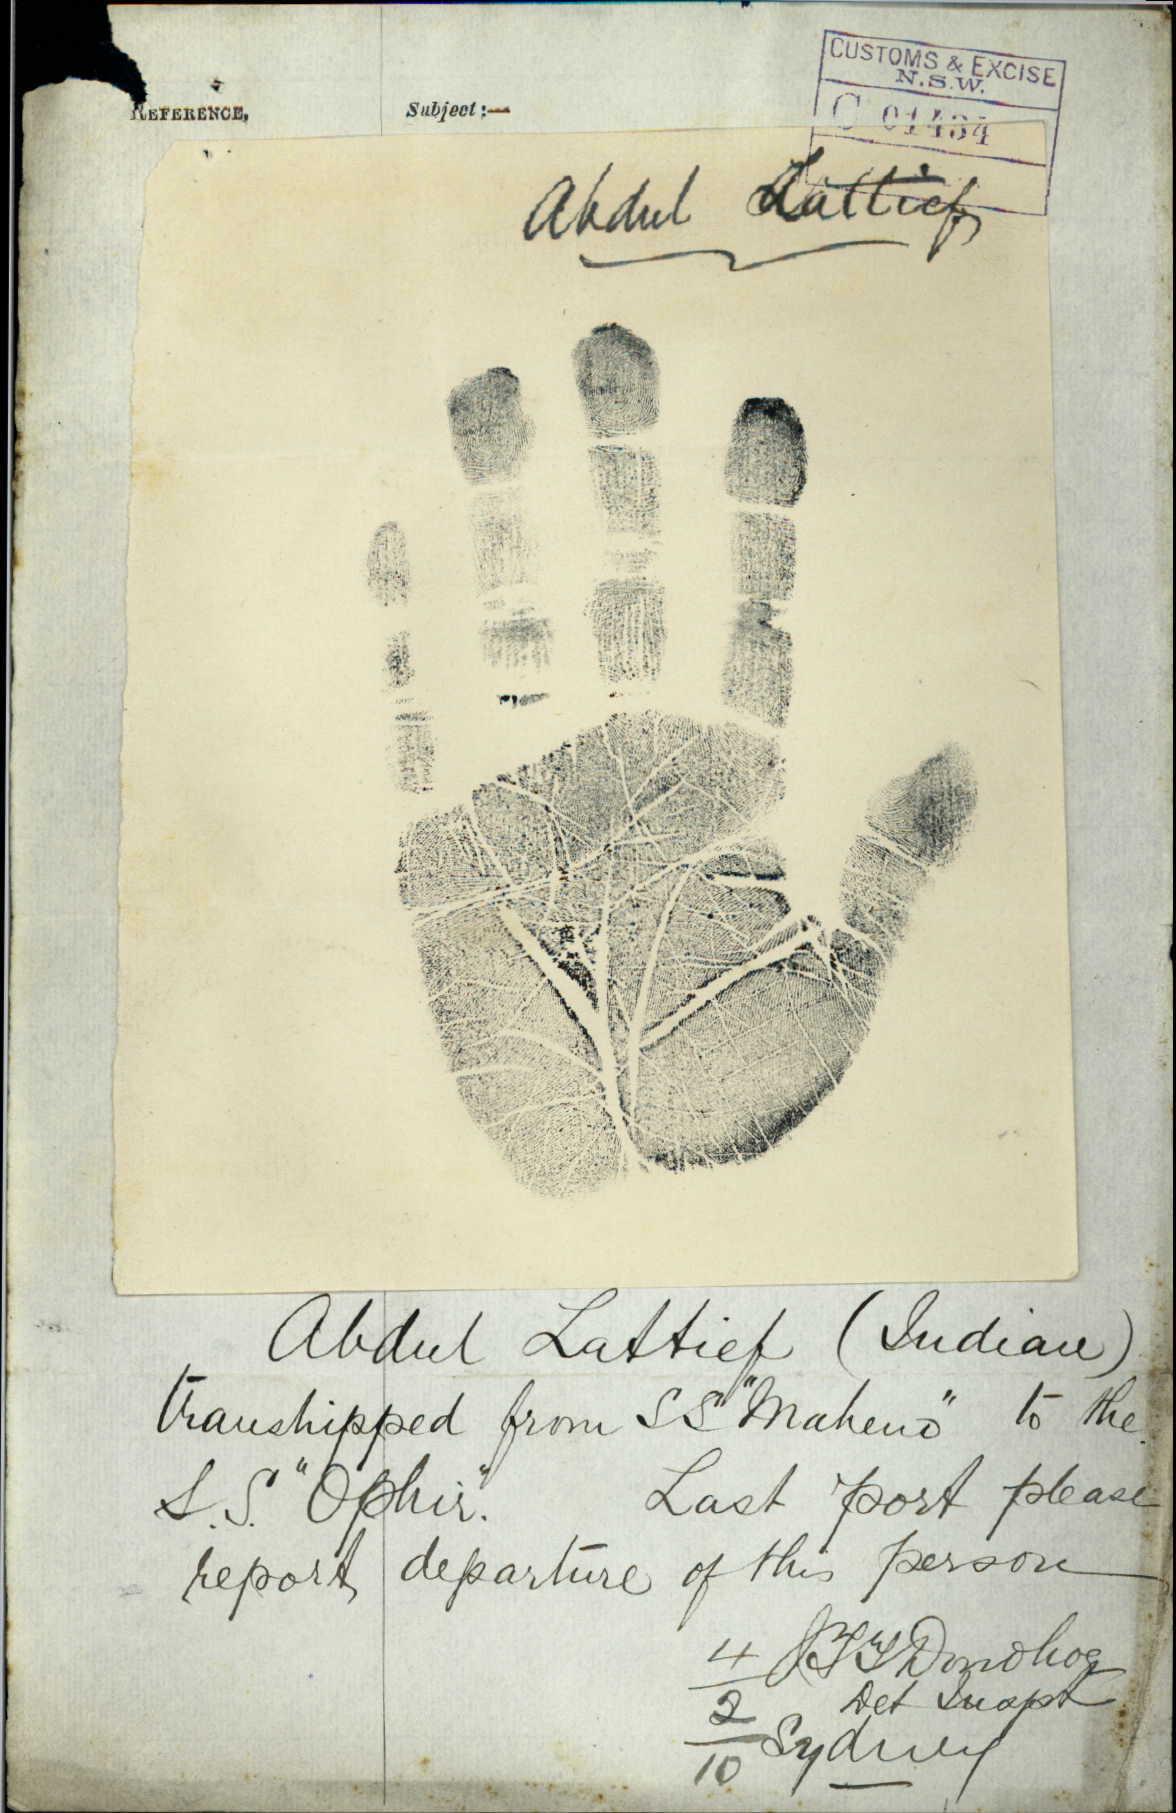 CUSTOMS & EXCISE
N.S.W.
C 01434
REFERENCE.
Subject:—
Abdul Lattief
Abdul Lattief (Indian)
transhipped from SS "Maheno" to the
S.S. "Ophir". Last port please
report departure of this person
4 Donohoe
2 Det Inspt
10 Sydney